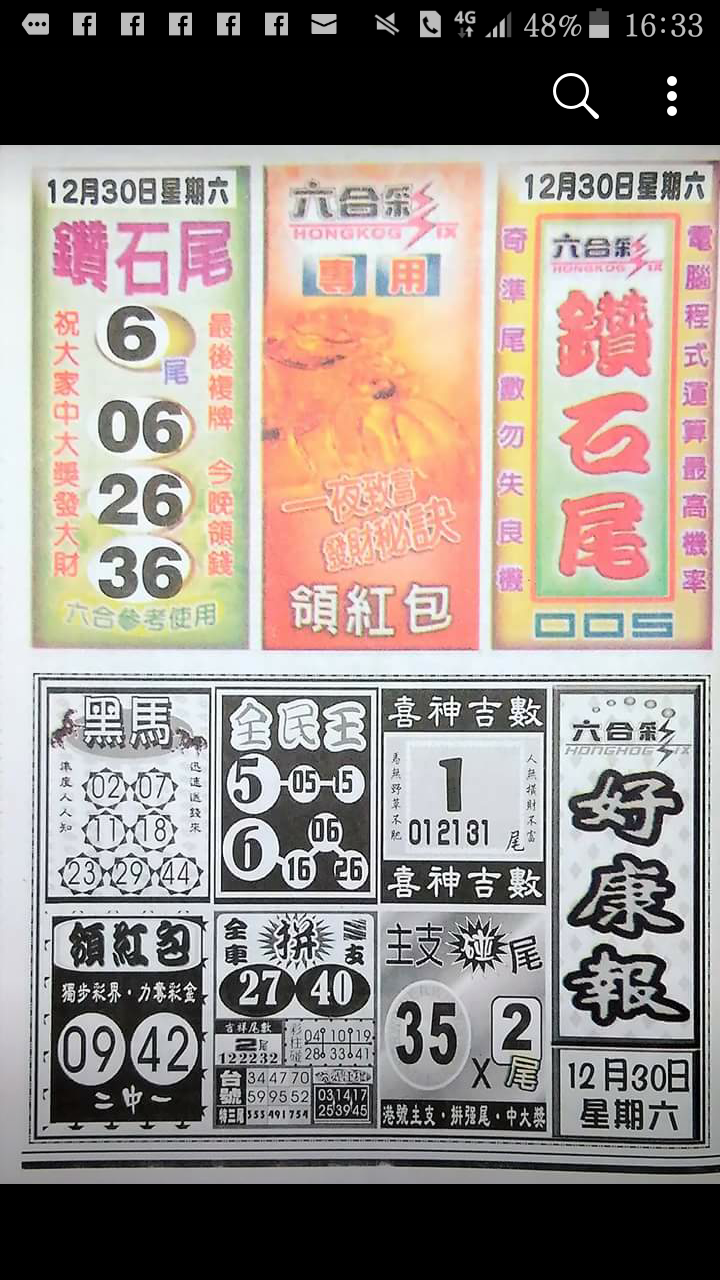 4G 48% 16:33
12月30日星期六
鑽石尾
祝大家中大獎發大財
6
尾
06
26
36
最後複牌 今晚領錢
六合參考使用
六合彩
HONGKOG SIX
專用
一夜致富
發財秘訣
領紅包
12月30日星期六
奇準尾數勿失良機
六合彩
HONGKOG SIX
鑽石尾
電腦程式運算最高機率
005
黑馬
準度人人知
迅速送錢來
02 07
11 18
23 29 44
全民王
5 05 15
6 06
16 26
喜神吉數
馬無野草不肥
1
人無橫財不富
01 21 31 尾
喜神吉數
六合彩
HONGHOG SIX
好康報
12月30日
星期六
領紅包
獨步彩界·力奪彩金
09 42
二中一
全車 拼 支
27 40
吉祥尾數
2尾
12 22 32
彩柱碰
04 10 19
28 33 41
台號
34 47 70
59 95 52
特三尾
353 491 754
03 14 17
25 39 45
主支 碰 尾
35 X 2尾
港號主支·拼强尾·中大獎